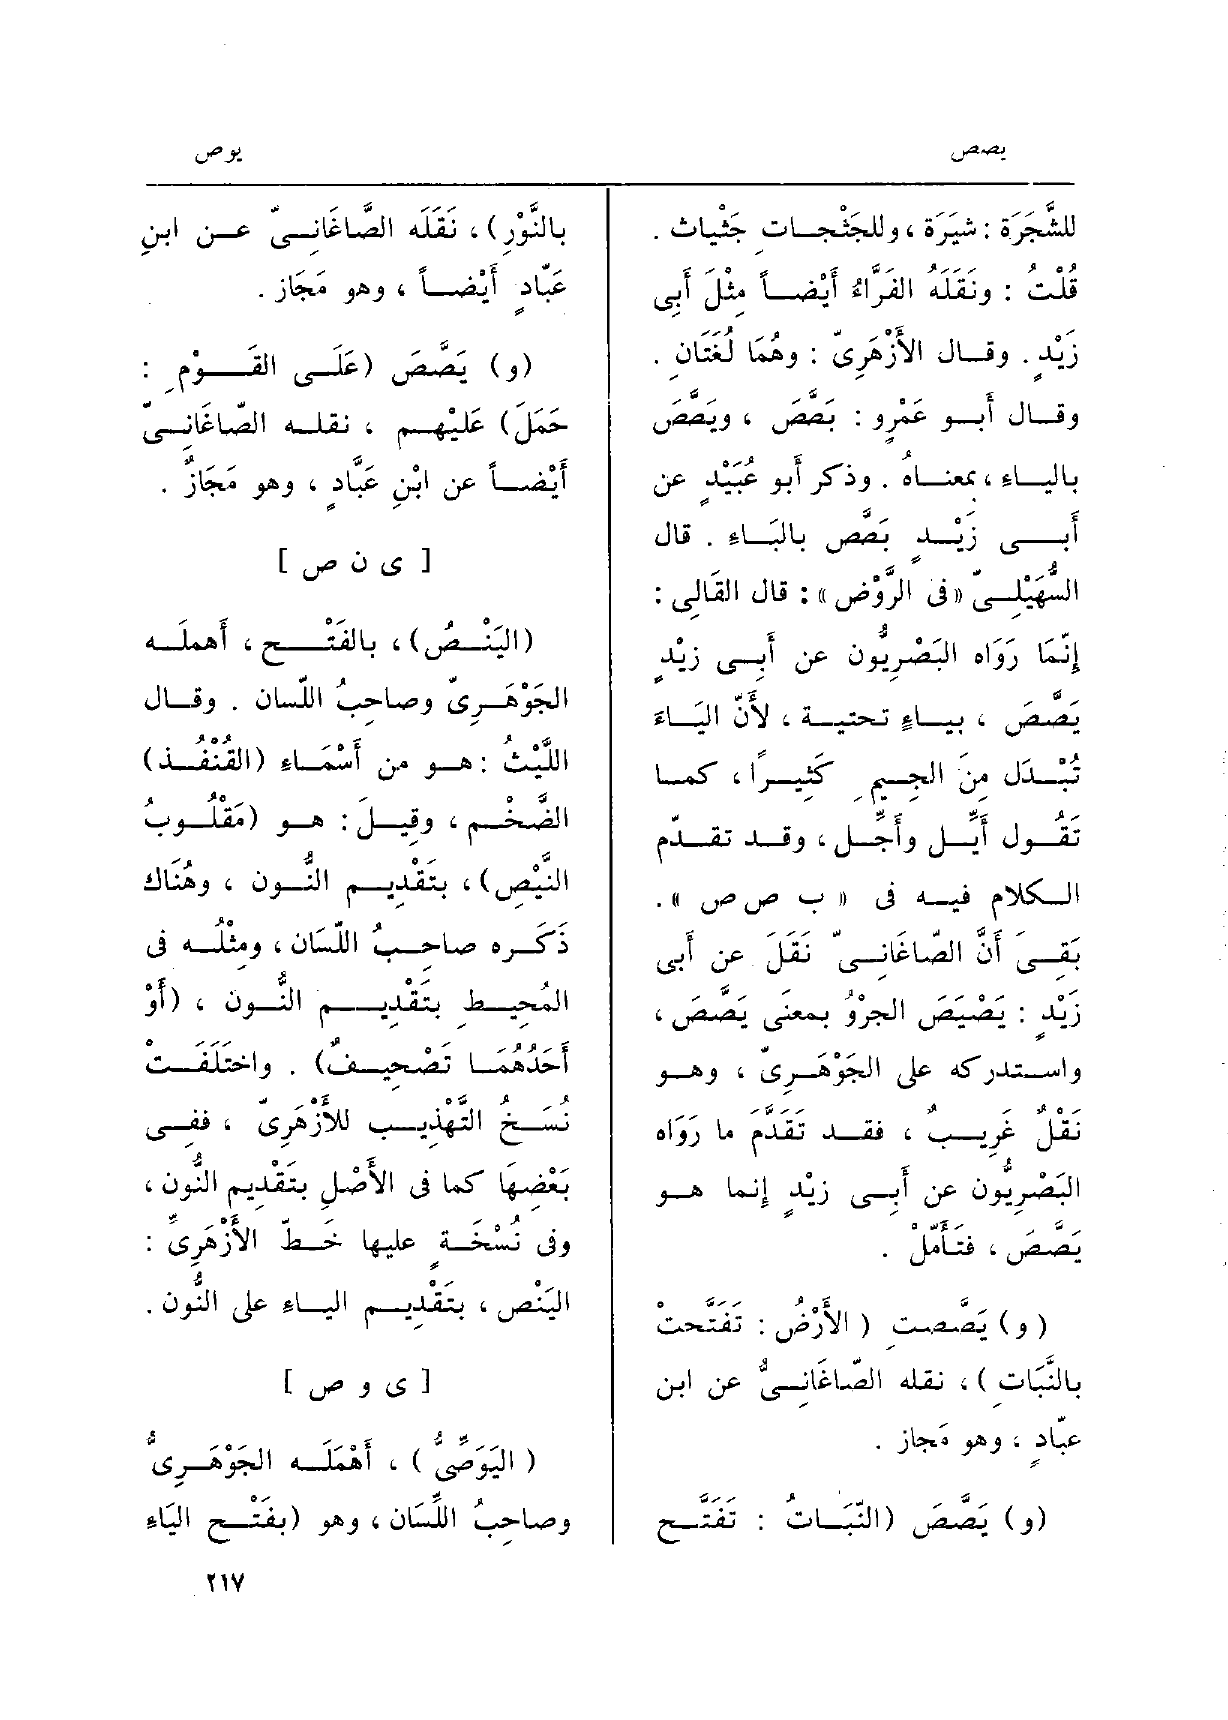 يصص
يوص
للشَّجَرَة : شيَرَة ، وللجَثْجـات جَثْياث .
قُلْتُ : ونَقَلَهُ الفَرَّاءُ أَيْضـاً مِثْلَ أَبِى
زَيْدٍ . وقـال الأَزْهَرِىّ : وهُمَا لُغَتَانِ .
وقـال أَبـو عَمْرٍو : بَصَّصَ ، ويَصَّصَ
باليـاء ، بمعنـاهُ . وذكر أَبو عُبَيْدٍ عن
أَبـى زَيْـدٍ بَصَّص بالبَـاءِ . قال
السُّهَيْلِـىّ «فى الرَّوْض» : قال القَالِى :
إِنّمَا رَوَاه البَصْرِيُّون عن أَبـى زيْدٍ
يَصَّصَ ، بيـاءٍ تحتيـة ، لأَنّ اليَـاءَ
تُبْـدَل مِنَ الجيـمِ كَثِيـرًا ، كمـا
تقُـول أَيّـل وأَجّـل ، وقـد تقـدّم
الـكلام فيـه فى « ب ص ص » .
بَقِـىَ أَنَّ الصّاغَانـىّ نَقَلَ عن أَبى
زَيْدٍ : يَصْيَصَ الجرْوُ بمعنَى يَصَّصَ ،
واستدركه على الجَوْهَرِىّ ، وهـو
نَقْلٌ غَرِيـبٌ ، فقـد تقَدَّمَ ما رَوَاه
البَصْرِيُّون عن أَبـى زيْدٍ إِنما هـو
يَصَّصَ ، فتأَمّلْ .
( و ) يَصَّصتِ ( الأَرْضُ : تَفَتَّحتْ
بالنَّبَاتِ ) ، نقله الصّاغَانـىُّ عن ابن
عبّادٍ ، وهو مَجاز .
(و) يَصَّصَ (النّبَـاتُ : تَفَتَّـح
بالنَّوْرِ) ، نَقَلَه الصَّاغَانِـىّ عـن ابنِ
عَبّادٍ أَيْضـاً ، وهو مَجَاز .
(و) يَصَّصَ (عَلَـى القَـوْمِ :
حَمَلَ) عَلَيْهِـم ، نقلـه الصّاغَانِـىّ
أَيْضـاً عن ابْنِ عَبَّادٍ ، وهو مَجَازٌ .
[ ى ن ص ]
(اليَنْـصُ) ، بالفَتْـح ، أَهملَـه
الجَوْهَـرِىّ وصاحِبُ اللّسان . وقـال
اللَّيْثُ : هـو من أَسْمَـاءِ (القُنْفُـذ)
الضَّخْـم ، وقِيـلَ : هـو (مَقْلُـوبُ
النَّيْصِ) ، بتَقْدِيـم النُّـون ، وهُنَاك
ذَكَـره صاحِـبُ اللّسَان ، ومثْلُـه فى
المُحِيـط بتَقْدِيـم النُّـون ، (أَوْ
أَحَدُهُمَـا تَصْحِيـفٌ) . واخْتَلَفَـتْ
نُسَـخُ التَّهْذِيـب للأَزْهَرِىّ ، ففـى
بَعْضِهَا كما فى الأَصْلِ بتَقْدِيم النُّون ،
وفى نُسْخَـةٍ عليها خَـطّ الأَزْهَرِىّ :
اليَنْص ، بتَقْدِيـم اليـاءِ على النُّون .
[ ى و ص ]
( اليَوَصِّىُّ ) ، أَهْمَلَـه الجَوْهَـرِىُّ
وصاحِبُ اللِّسَان ، وهو (بفَتْـح اليَاءِ
٢١٧